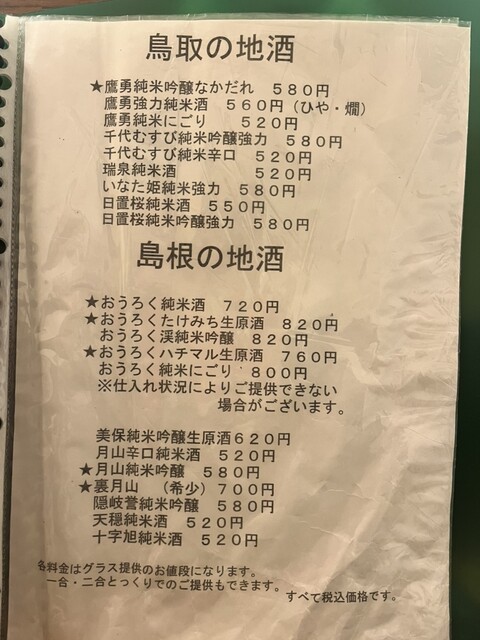 鳥取の地酒
★鷹勇純米吟醸なかだれ ５８０円
鷹勇強力純米酒 ５６０円（ひや・燗）
鷹勇純米にごり ５２０円
千代むすび純米吟醸強力 ５８０円
千代むすび純米辛口 ５２０円
瑞泉純米酒 ５２０円
いなた姫純米強力 ５８０円
日置桜純米酒 ５５０円
日置桜純米吟醸強力 ５８０円
島根の地酒
★おうろく純米酒 ７２０円
★おうろくたけみち生原酒 ８２０円
おうろく渓純米吟醸 ８２０円
★おうろくハチマル生原酒 ７６０円
おうろく純米にごり ８００円
※仕入れ状況によりご提供できない
場合がございます。
美保純米吟醸生原酒６２０円
月山辛口純米酒 ５２０円
★月山純米吟醸 ５８０円
★裏月山 （希少）７００円
隠岐誉純米吟醸 ５８０円
天穏純米酒 ５２０円
十字旭純米酒 ５２０円
各料金はグラス提供のお値段になります。
一合・二合とっくりでのご提供もできます。
すべて税込価格です。